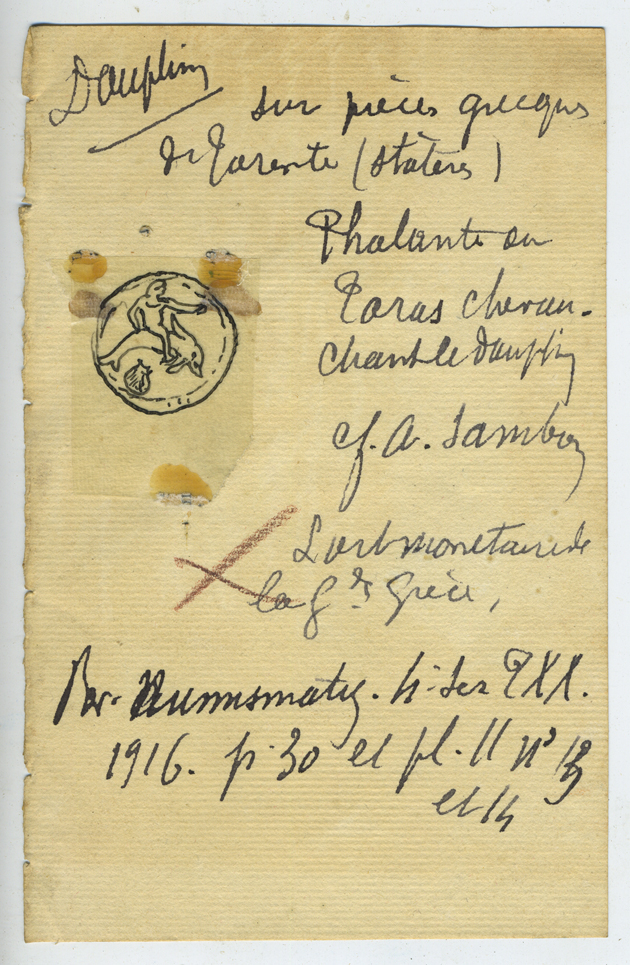 Dauphin
sur pièces grecques
de Tarente (statères)
Phalante ou
Taras chevau-
chant le dauphin
cf. A. Sambon
L'art monétaire de
la Gde Grèce,
Rev. Numismatiq. 4e Ser T XX.
1916. p. 30 et pl. II n° 13
et 14